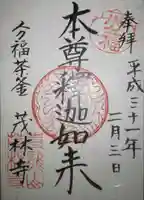 奉拝
平成三十一年
二月三日
本尊釈迦如来
分福茶釜
茂林寺